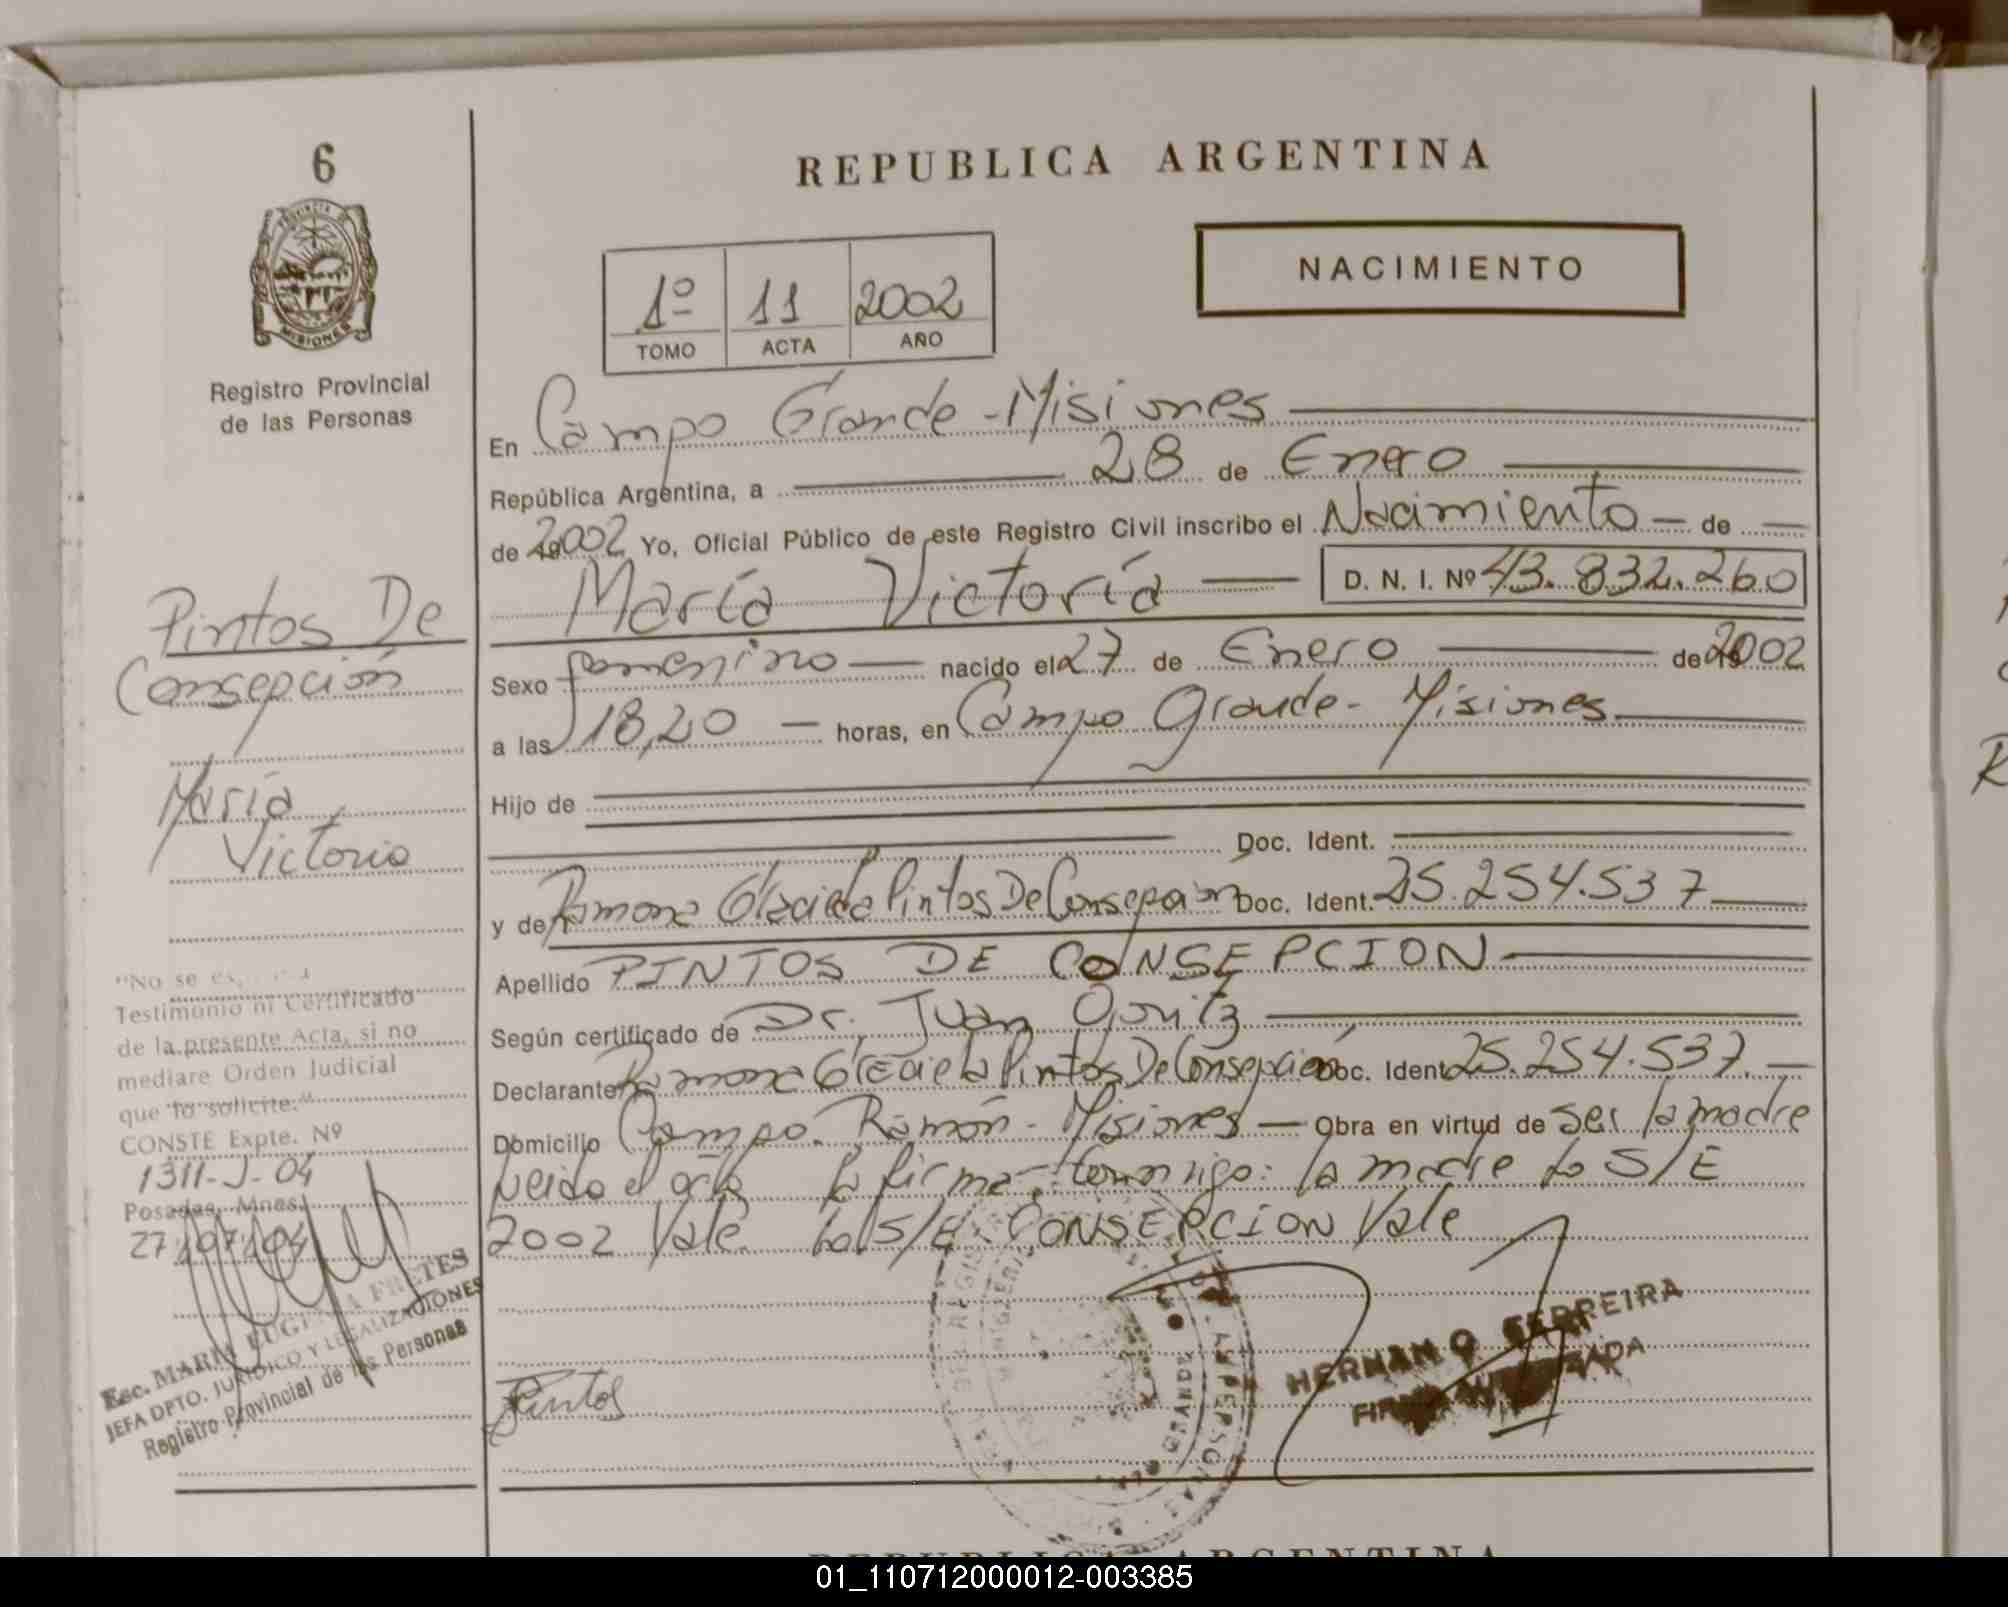 6
REPUBLICA ARGENTINA
NACIMIENTO
1º 11 2002
TOMO ACTA AÑO
PROVINCIA DE
MISIONES
Registro Provincial
de las Personas
En Campo Grande - Misiones
República Argentina, a 28 de Enero
de 2002 Yo, Oficial Público de este Registro Civil inscribo el Nacimiento — de —
María Victoría — D. N. I. Nº 43.832.260
Sexo femenino — nacido el 27 de Enero — de 2002
a las 18,20 — horas, en Campo Grande - Misiones
Hijo de
Doc. Ident.
y de Ramona Graciela Pintos De Consepción Doc. Ident. 25.254.537
Apellido PINTOS DE CONSEPCION
Según certificado de Dr. Juan
Declarante Ramona Graciela Pintos De Consepción Doc. Ident. 25.254.537.—
Domicilio Campo Ramón - Misiones — Obra en virtud de ser la madre
Leida el acta la firma conmigo: la madre lo S/E
2002 Vale lo S/E CONSEPCION Vale
Pintos
HERNAN O. FERREIRA
FIRMA
Pintos De
Consepción
María
Victoria
"No se
Testimonio ni Certificado
de la presente Acta, si no
mediare Orden Judicial
que lo solicite."
CONSTE Expte. Nº
1311-J-04
Posadas, Mnes.
27/07/04
Esc. MARIA EUGENIA FRETES
JEFA DPTO. JURIDICO Y LEGALIZACIONES
Registro Provincial de las Personas
REPUBLICA ARGENTINA
01_110712000012-003385